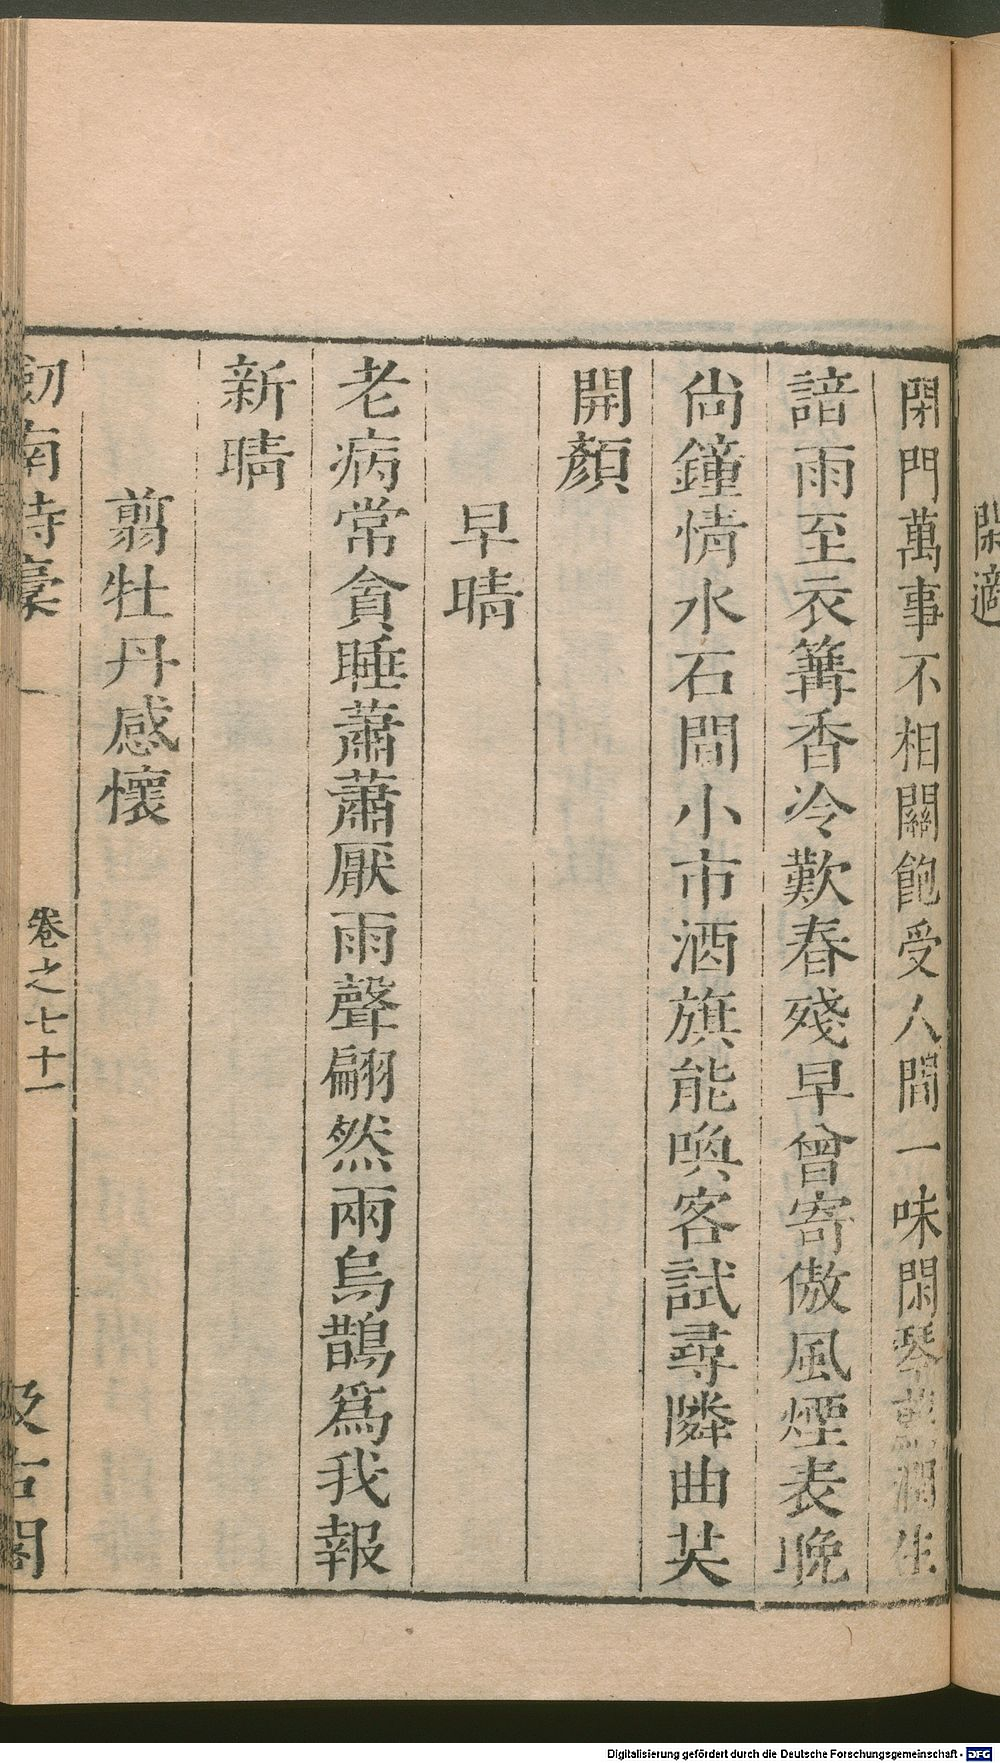 閑適
閑門萬事不相關飽受人間一味閑琴潤生
諳雨至衣篝香冷歎春殘早曾寄傲風煙表晚
尙鐘情水石間小市酒旗能喚客試尋隣曲㳟
開顏
早晴
老病常貪睡蕭蕭厭雨聲翩然兩烏鵲爲我報
新晴
翦牡丹感懷
劒南詩稾 卷之七十一 汲古閣
Digitalisierung gefördert durch die Deutsche Forschungsgemeinschaft - DFG